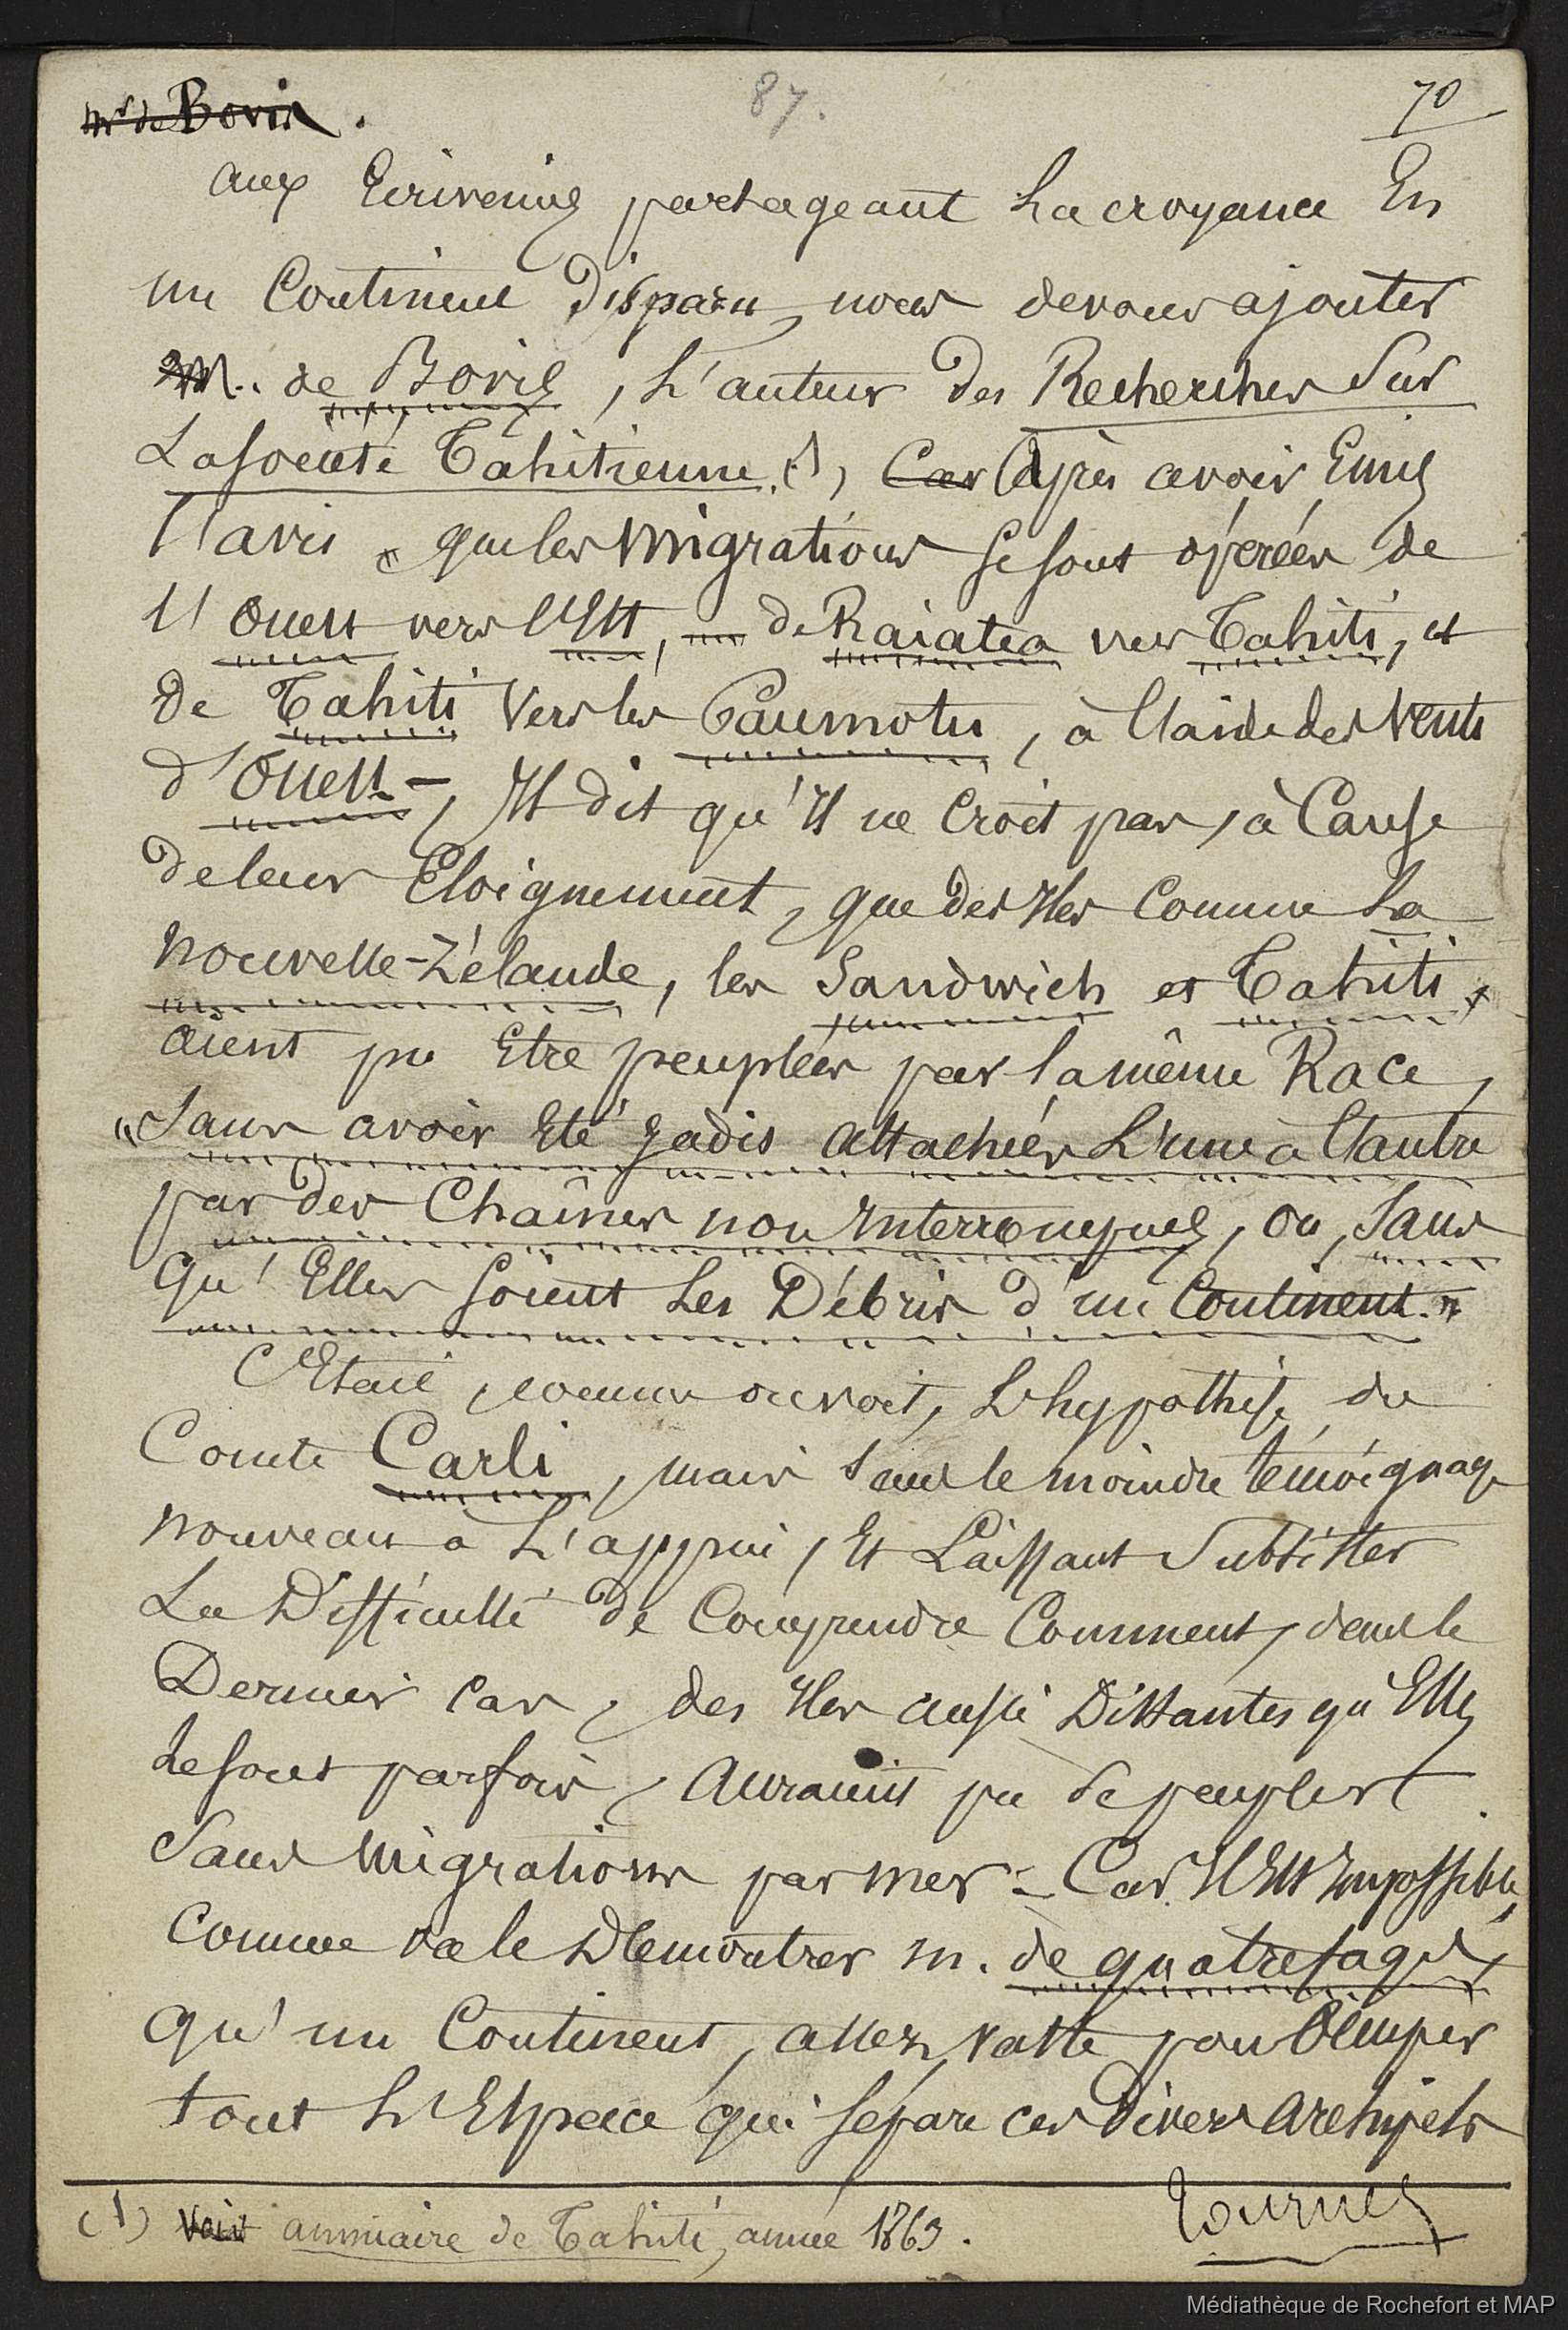 Mr de Bovis.
87.
70
aux Ecrivains partageant La croyance En
un Continent Disparu, nous devons ajouter
M. de Bovis, L'auteur des Recherches Sur
La Société Tahitienne (1), Car Après avoir Emis
l'avis " que les Migrations se sont opérées de
l'Ouest vers l'Est, de Raiatea vers Tahiti, et
de Tahiti Vers les Paumotu, à l'aide des Vents
d'Ouest —, Il dit qu'Il ne Croit pas, à Cause
de leur Eloignement, que des Iles Comme La
Nouvelle-Zélande, les Sandwich et Tahiti,
aient pu Etre peuplées par la même Race,
"Sans avoir Eté jadis attachées L'une à l'autre
par des Chaînes non Interrompues, ou, Sans
qu'Elles soient Les Débris d'un Continent."
C'Etait, comme on voit, L'hypothèse du
Comte Carli, mais sans le moindre témoignage
nouveau à L'appui, Et Laissant Subsister
La Difficulté de Comprendre Comment, dans le
Dernier Cas, des Iles aussi Distantes qu'Elles
Le sont parfois, Auraient pu Se peupler
Sans Migrations par mer. — Car Il Est Impossible,
Comme va le Démontrer M. de Quatrefages,
qu'un Continent, assez vaste pour Occuper
tout L'Espace qui sépare ces Divers Archipels
(1) Voir annuaire de Tahiti, année 1863.
Tournez
Médiathèque de Rochefort et MAP